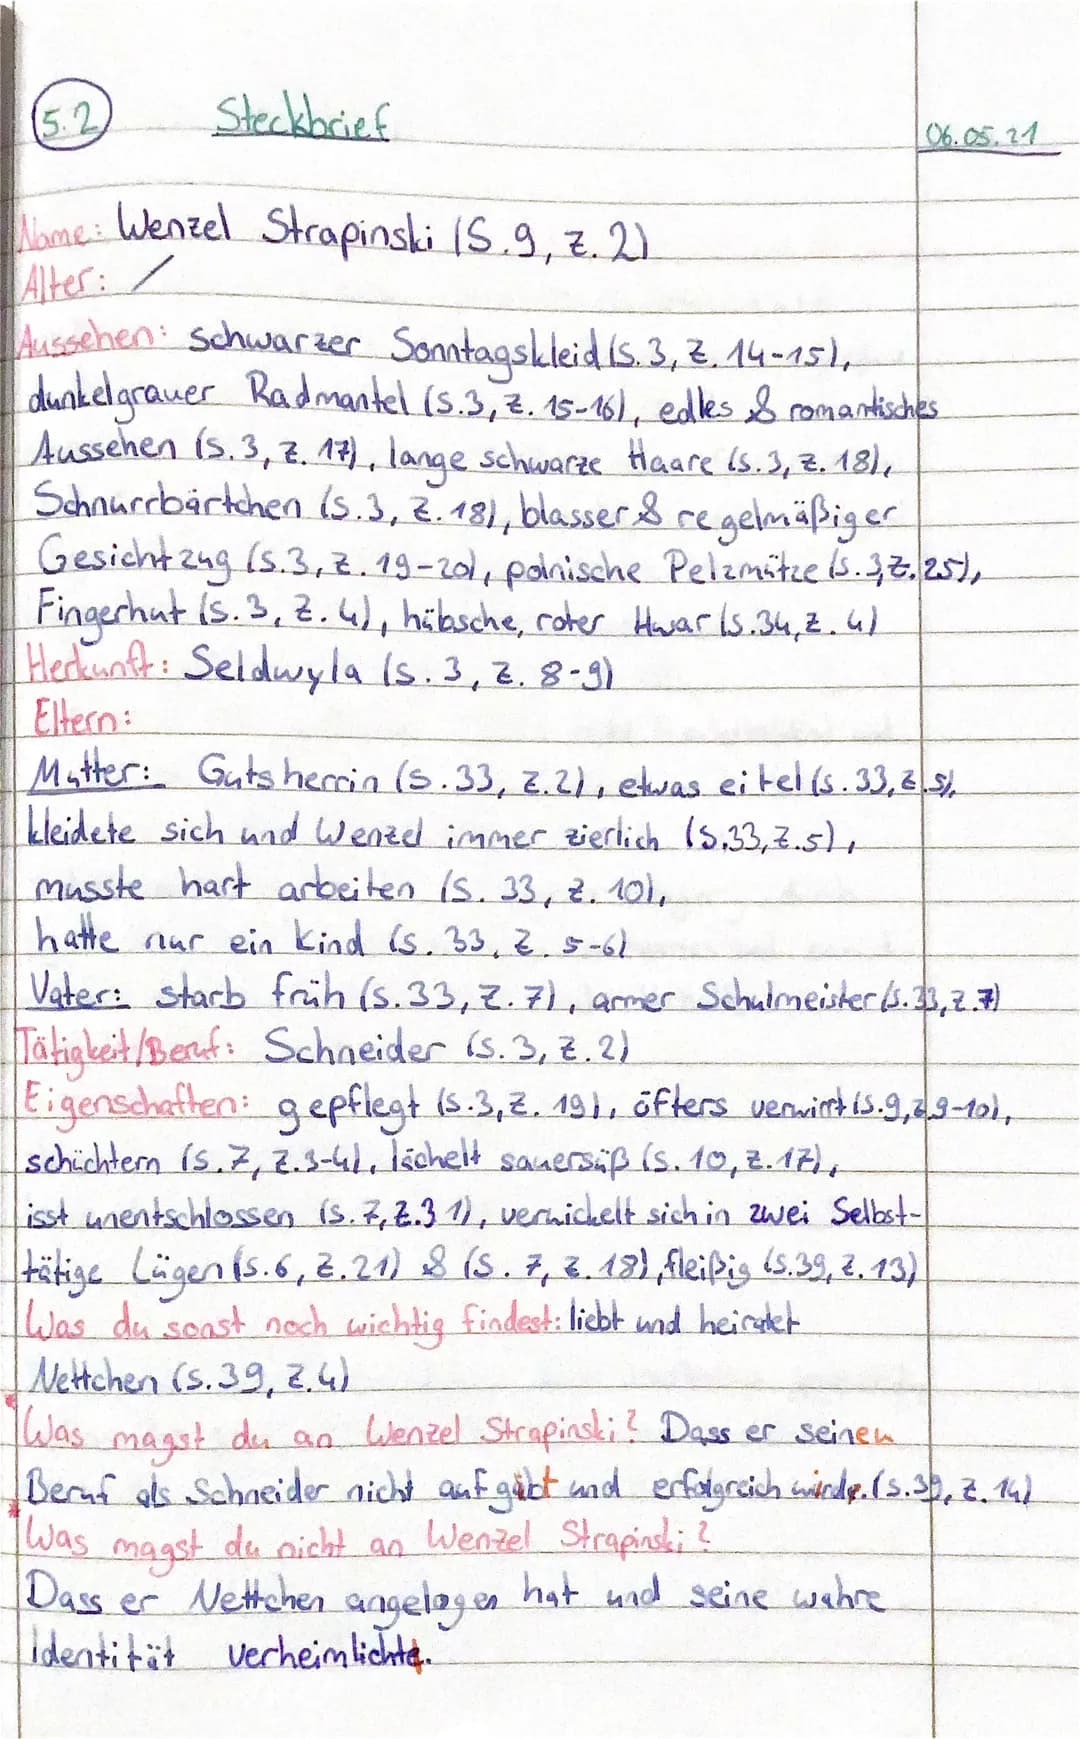 5.2 Steckbrief 06.05.21
Name: Wenzel Strapinski (S.9, Z.2)
Alter: /
Aussehen: schwarzer Sonntagskleid (S.3, Z.14-15),
dunkelgrauer Radmantel (S.3, Z.15-16), edles & romantisches
Aussehen (S.3, Z.17), lange schwarze Haare (S.3, Z.18),
Schnurrbärtchen (S.3, Z.18), blasser & regelmäßiger
Gesichtzug (S.3, Z.19-20), polnische Pelzmütze (S.3, Z.25),
Fingerhut (S.3, Z.4), hübsche, roter (S.34, Z.4)
Herkunft: Seldwyla (S.3, Z.8-9)
Eltern:
Mutter: Gutsherrin (S.33, Z.2), etwas eitel (S.33, Z.5),
kleidete sich und Wenzel immer zierlich (S.33, Z.5),
musste hart arbeiten (S.33, Z.10),
hatte nur ein Kind (S.33, Z.5-6)
Vater: starb früh (S.33, Z.7), armer Schulmeister (S.33, Z.7)
Tätigkeit/Beruf: Schneider (S.3, Z.2)
Eigenschaften: gepflegt (S.3, Z.19), öfters verwirrt (S.9, Z.9-10),
schüchtern (S.7, Z.3-4), lächelt sauersüß (S.10, Z.17),
isst unentschlossen (S.7, Z.31), verwickelt sich in zwei Selbst-
tätige Lügen (S.6, Z.21) & (S.7, Z.18), fleißig (S.39, Z.13)
Was du sonst noch wichtig findest: liebt und heiratet
Nettchen (S.39, Z.4)
Was magst du an Wenzel Strapinski? Dass er seinen
Beruf als Schneider nicht aufgibt und erfolgreich wird. (S.39, Z.14)
Was magst du nicht an Wenzel Strapinski?
Dass er Nettchen angelogen hat und seine wahre
Identität verheimlichte.